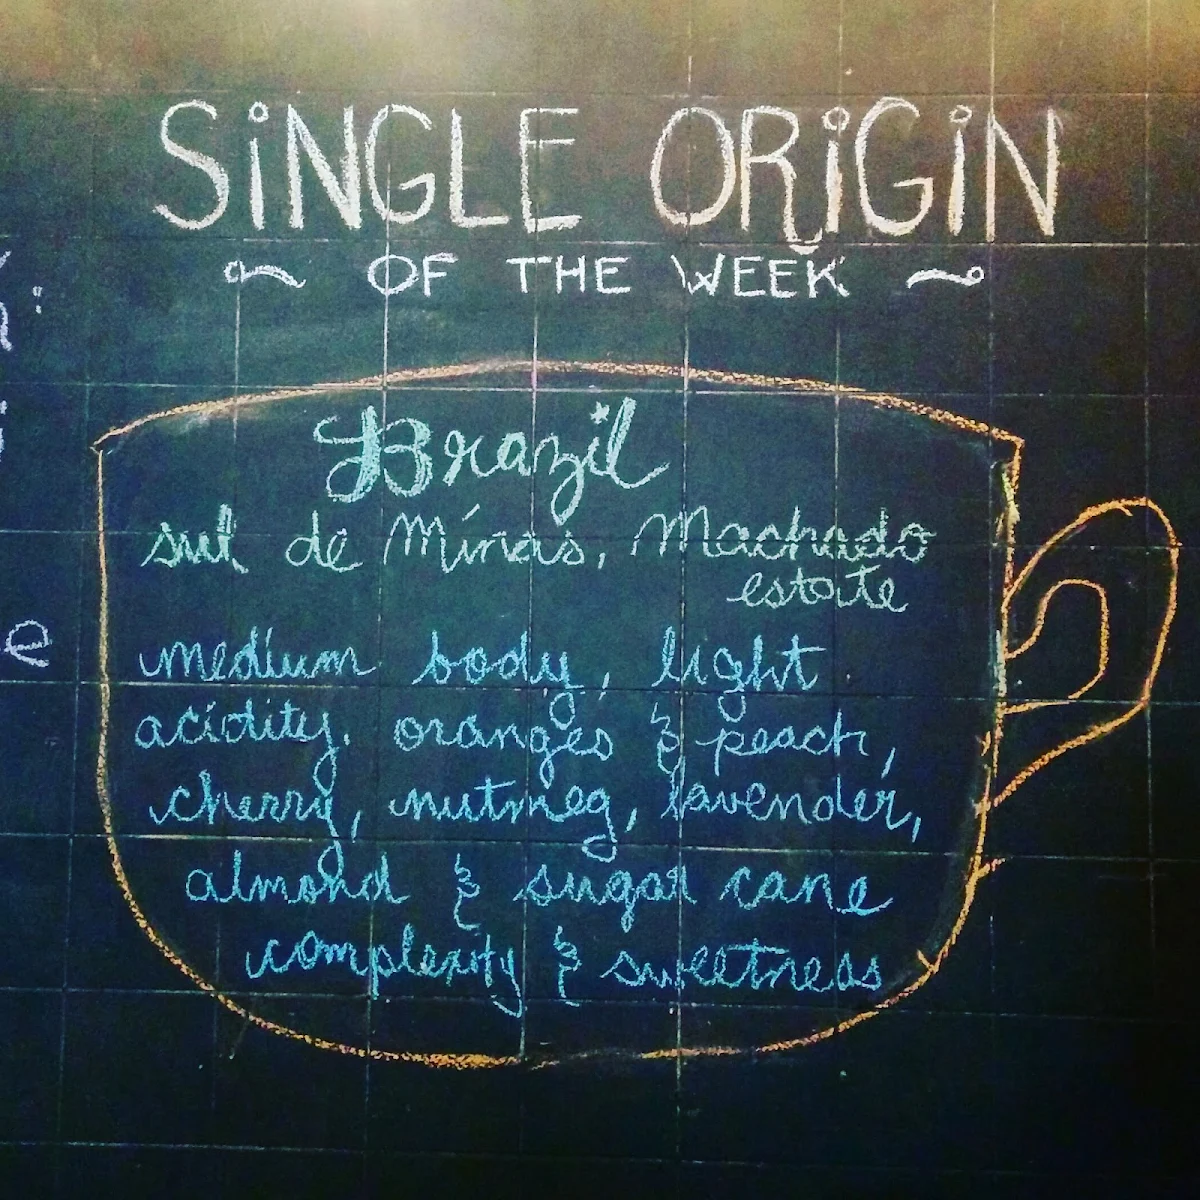 SiNGLE ORiGiN
~ OF THE WEEK ~
Brazil
sul de Minas, Machado
estate
medium body, light
acidity. oranges & peach,
cherry, nutmeg, lavender,
almond & sugar cane
complexity & sweetness